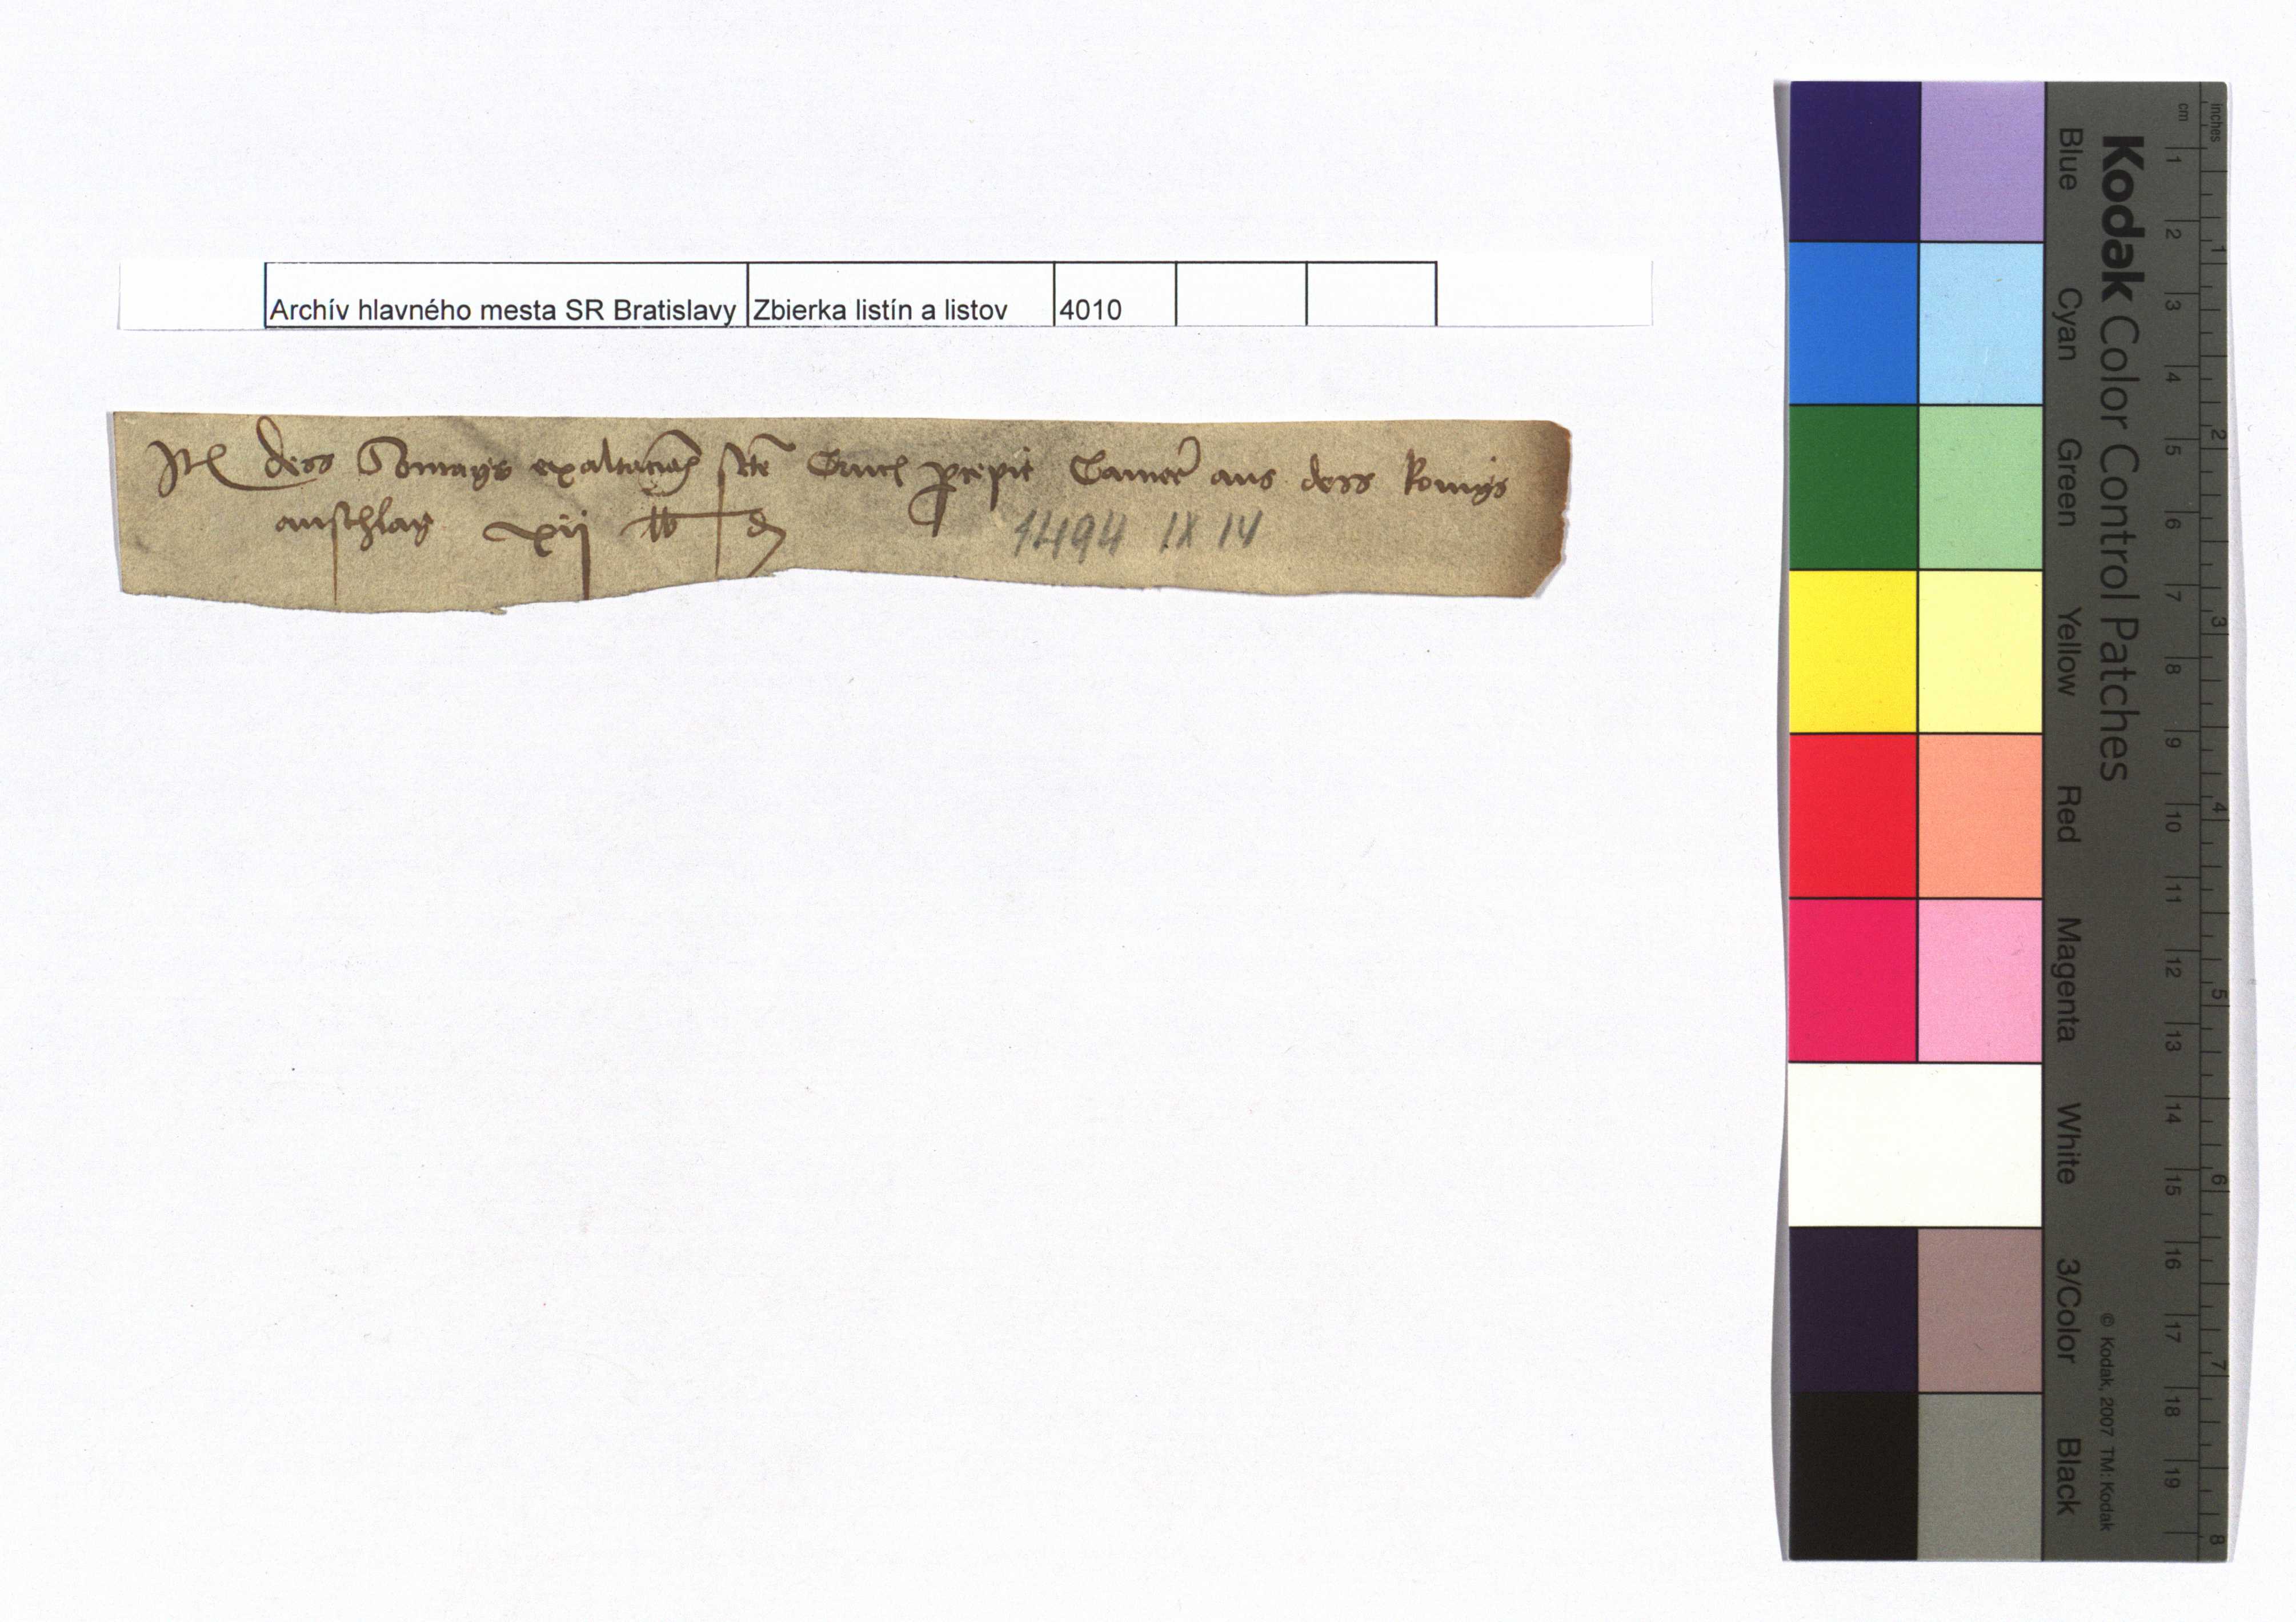 Archív hlavného mesta SR Bratislavy Zbierka listín a listov 4010
Itẽ dess Sontags exaltacionis scte Crucis percepit Camerer aus dess konigs
anschlag xij lb d
1494 IX 14
inches
cm
1 2 3 4 5 6 7 8 9 10 11 12 13 14 15 16 17 18 19
1 2 3 4 5 6 7 8
Kodak Color Control Patches
© Kodak, 2007 TM: Kodak
Blue Cyan Green Yellow Red Magenta White 3/Color Black